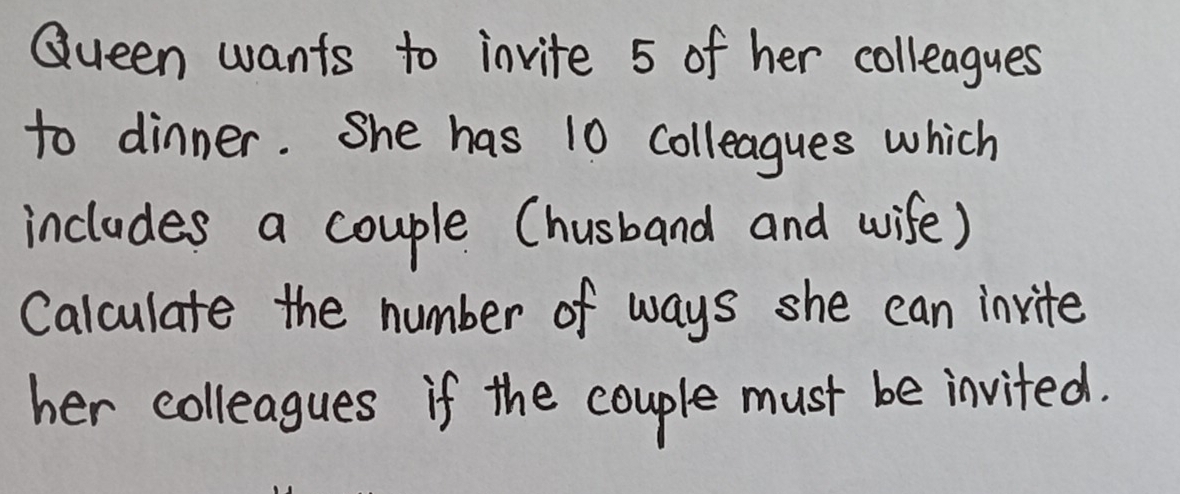 Queen wants to invite 5 of her colleagues
to dinner. She has 10 colleagues which
includes a couple (husband and wife)
Calculate the number of ways she can invite
her colleagues if the couple must be invited.